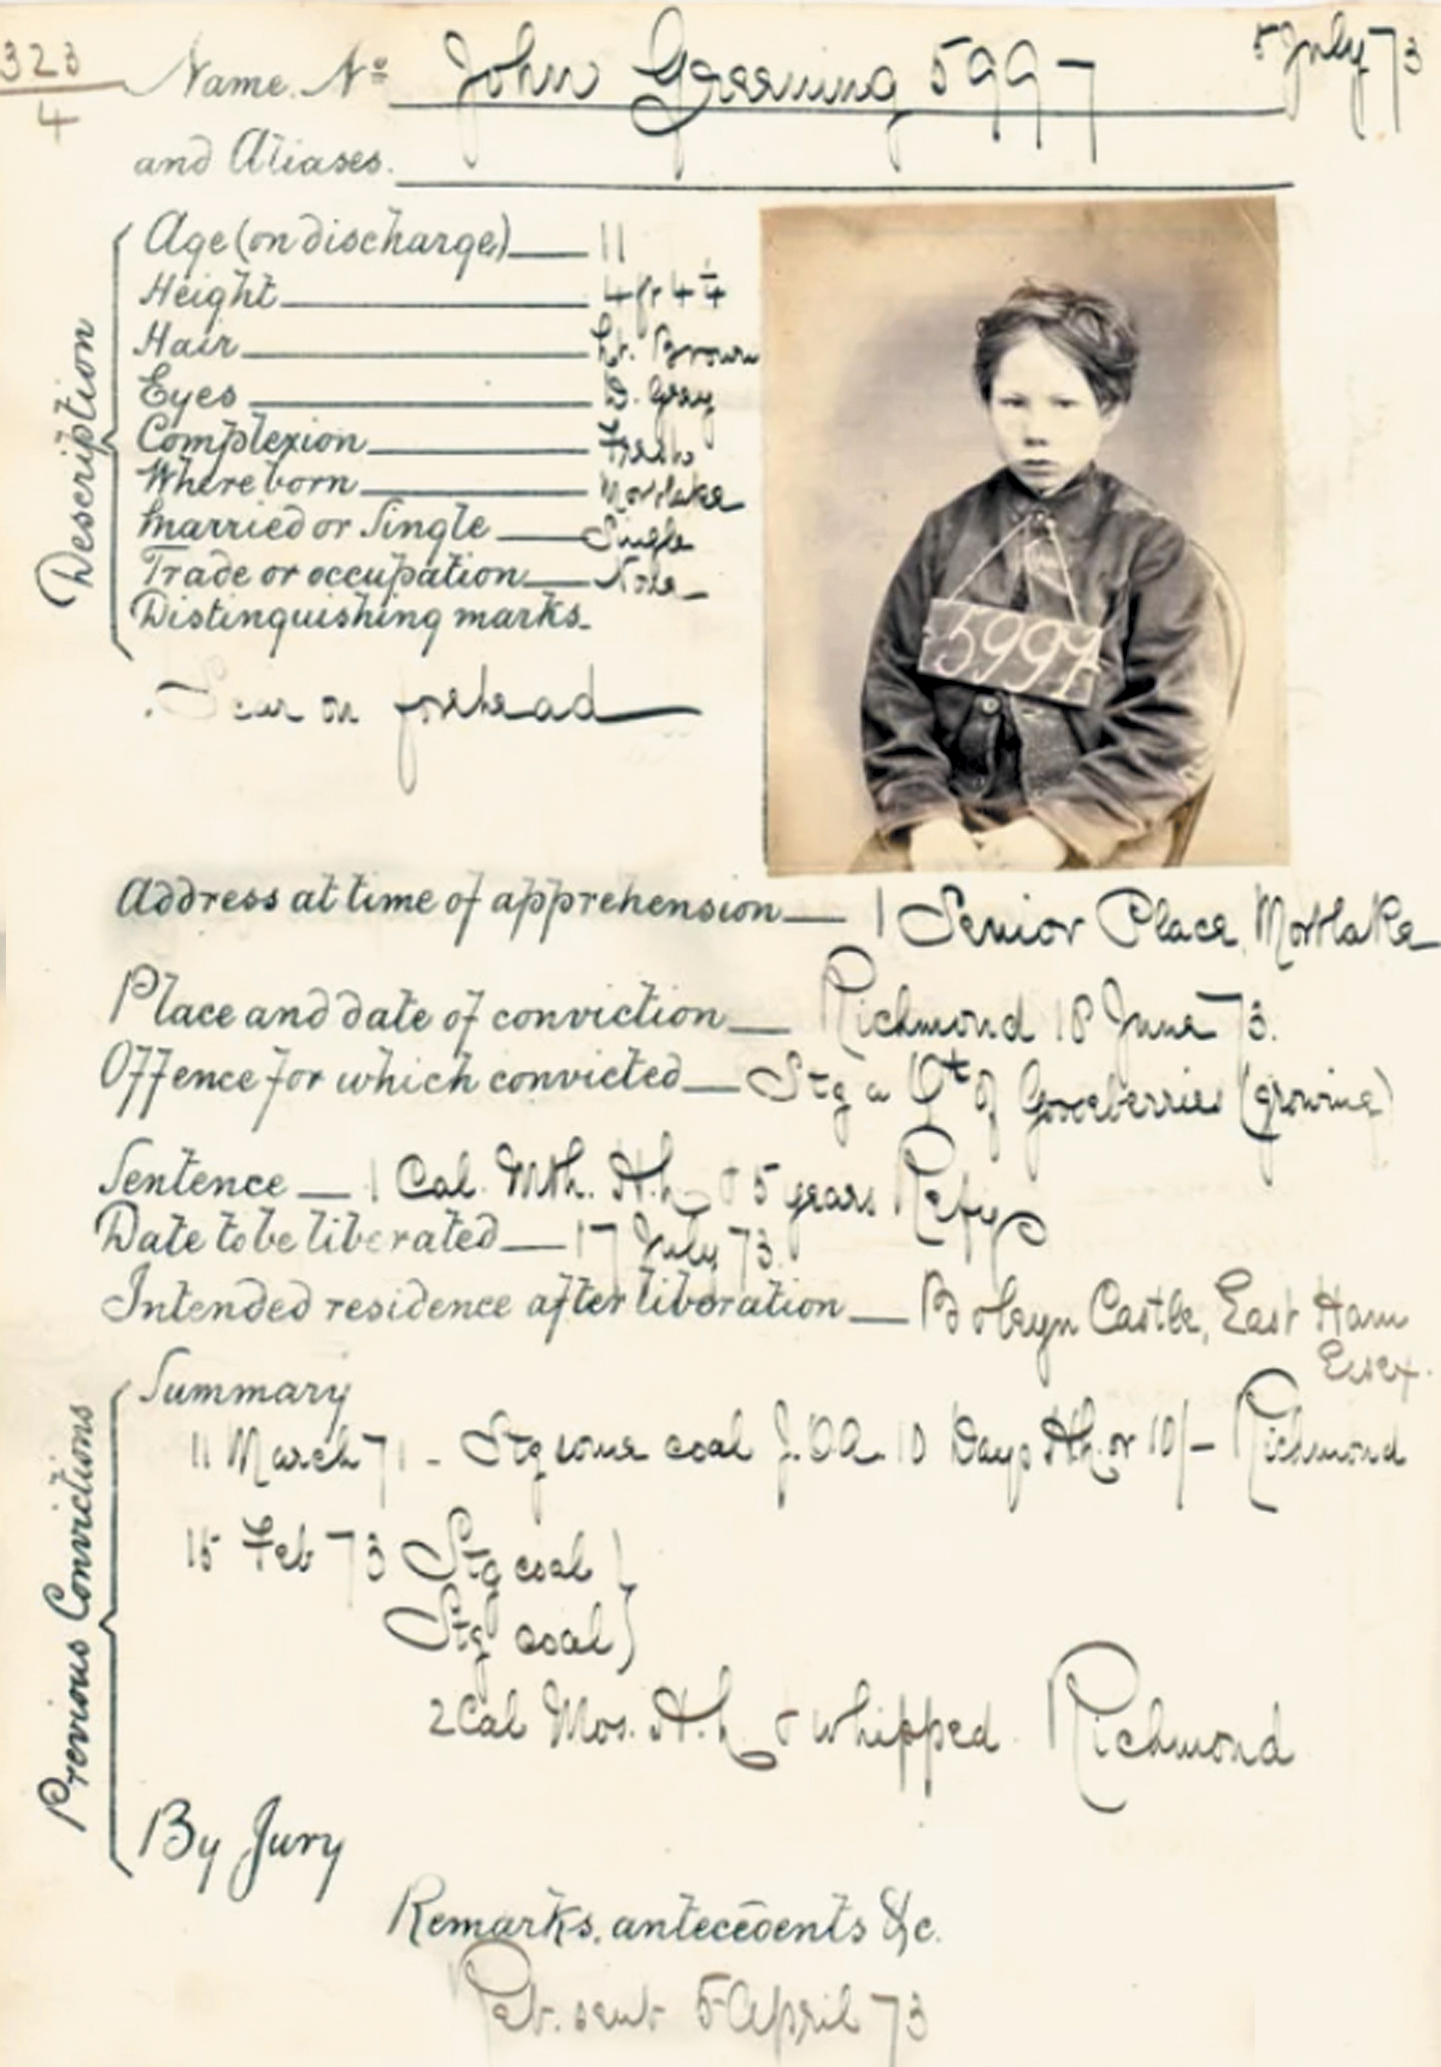 323
4
Name. Nº John Greening 5997 5 July 73
and Aliases.
Description
Age (on discharge) 11
Height 4 ft 4 ¼
Hair Lt. Brown
Eyes D. Grey
Complexion Fresh
Where born Mortlake
Married or Single Single
Trade or occupation None
Distinguishing marks.
Scar on forehead
5997
Address at time of apprehension 1 Senior Place, Mortlake
Place and date of conviction Richmond 18 June 73.
Offence for which convicted Stg a Qt of Gooseberries (growing)
Sentence 1 Cal. Mth. H.L & 5 years Refy
Date to be liberated 17 July 73.
Intended residence after liberation Boleyn Castle, East Ham
Essex.
Previous Convictions
Summary
11 March 71 - Stg some coal J.O.A. 10 Days Hh. or 10/- Richmond
15 Feb 73 Stg coal }
Stg coal }
2 Cal Mos. H.L & whipped. Richmond
By Jury
Remarks, antecedents &c.
Ret. sent 5 April 73